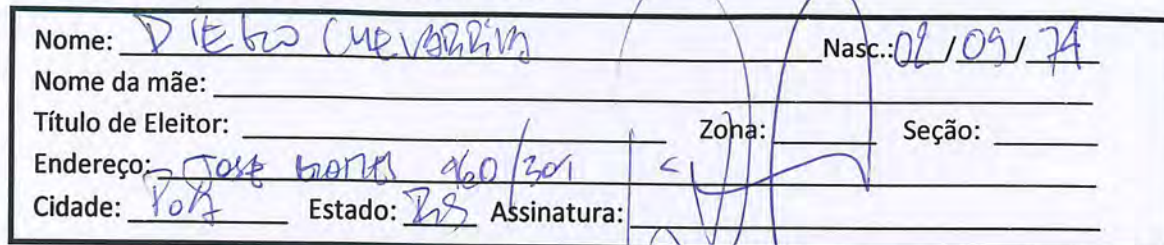 Nome: DIEGO CHEVARRIA Nasc.: 02/09/74
Nome da mãe:
Título de Eleitor: Zona: Seção:
Endereço: JOSÉ GOMES 960/301
Cidade: POA Estado: RS Assinatura: